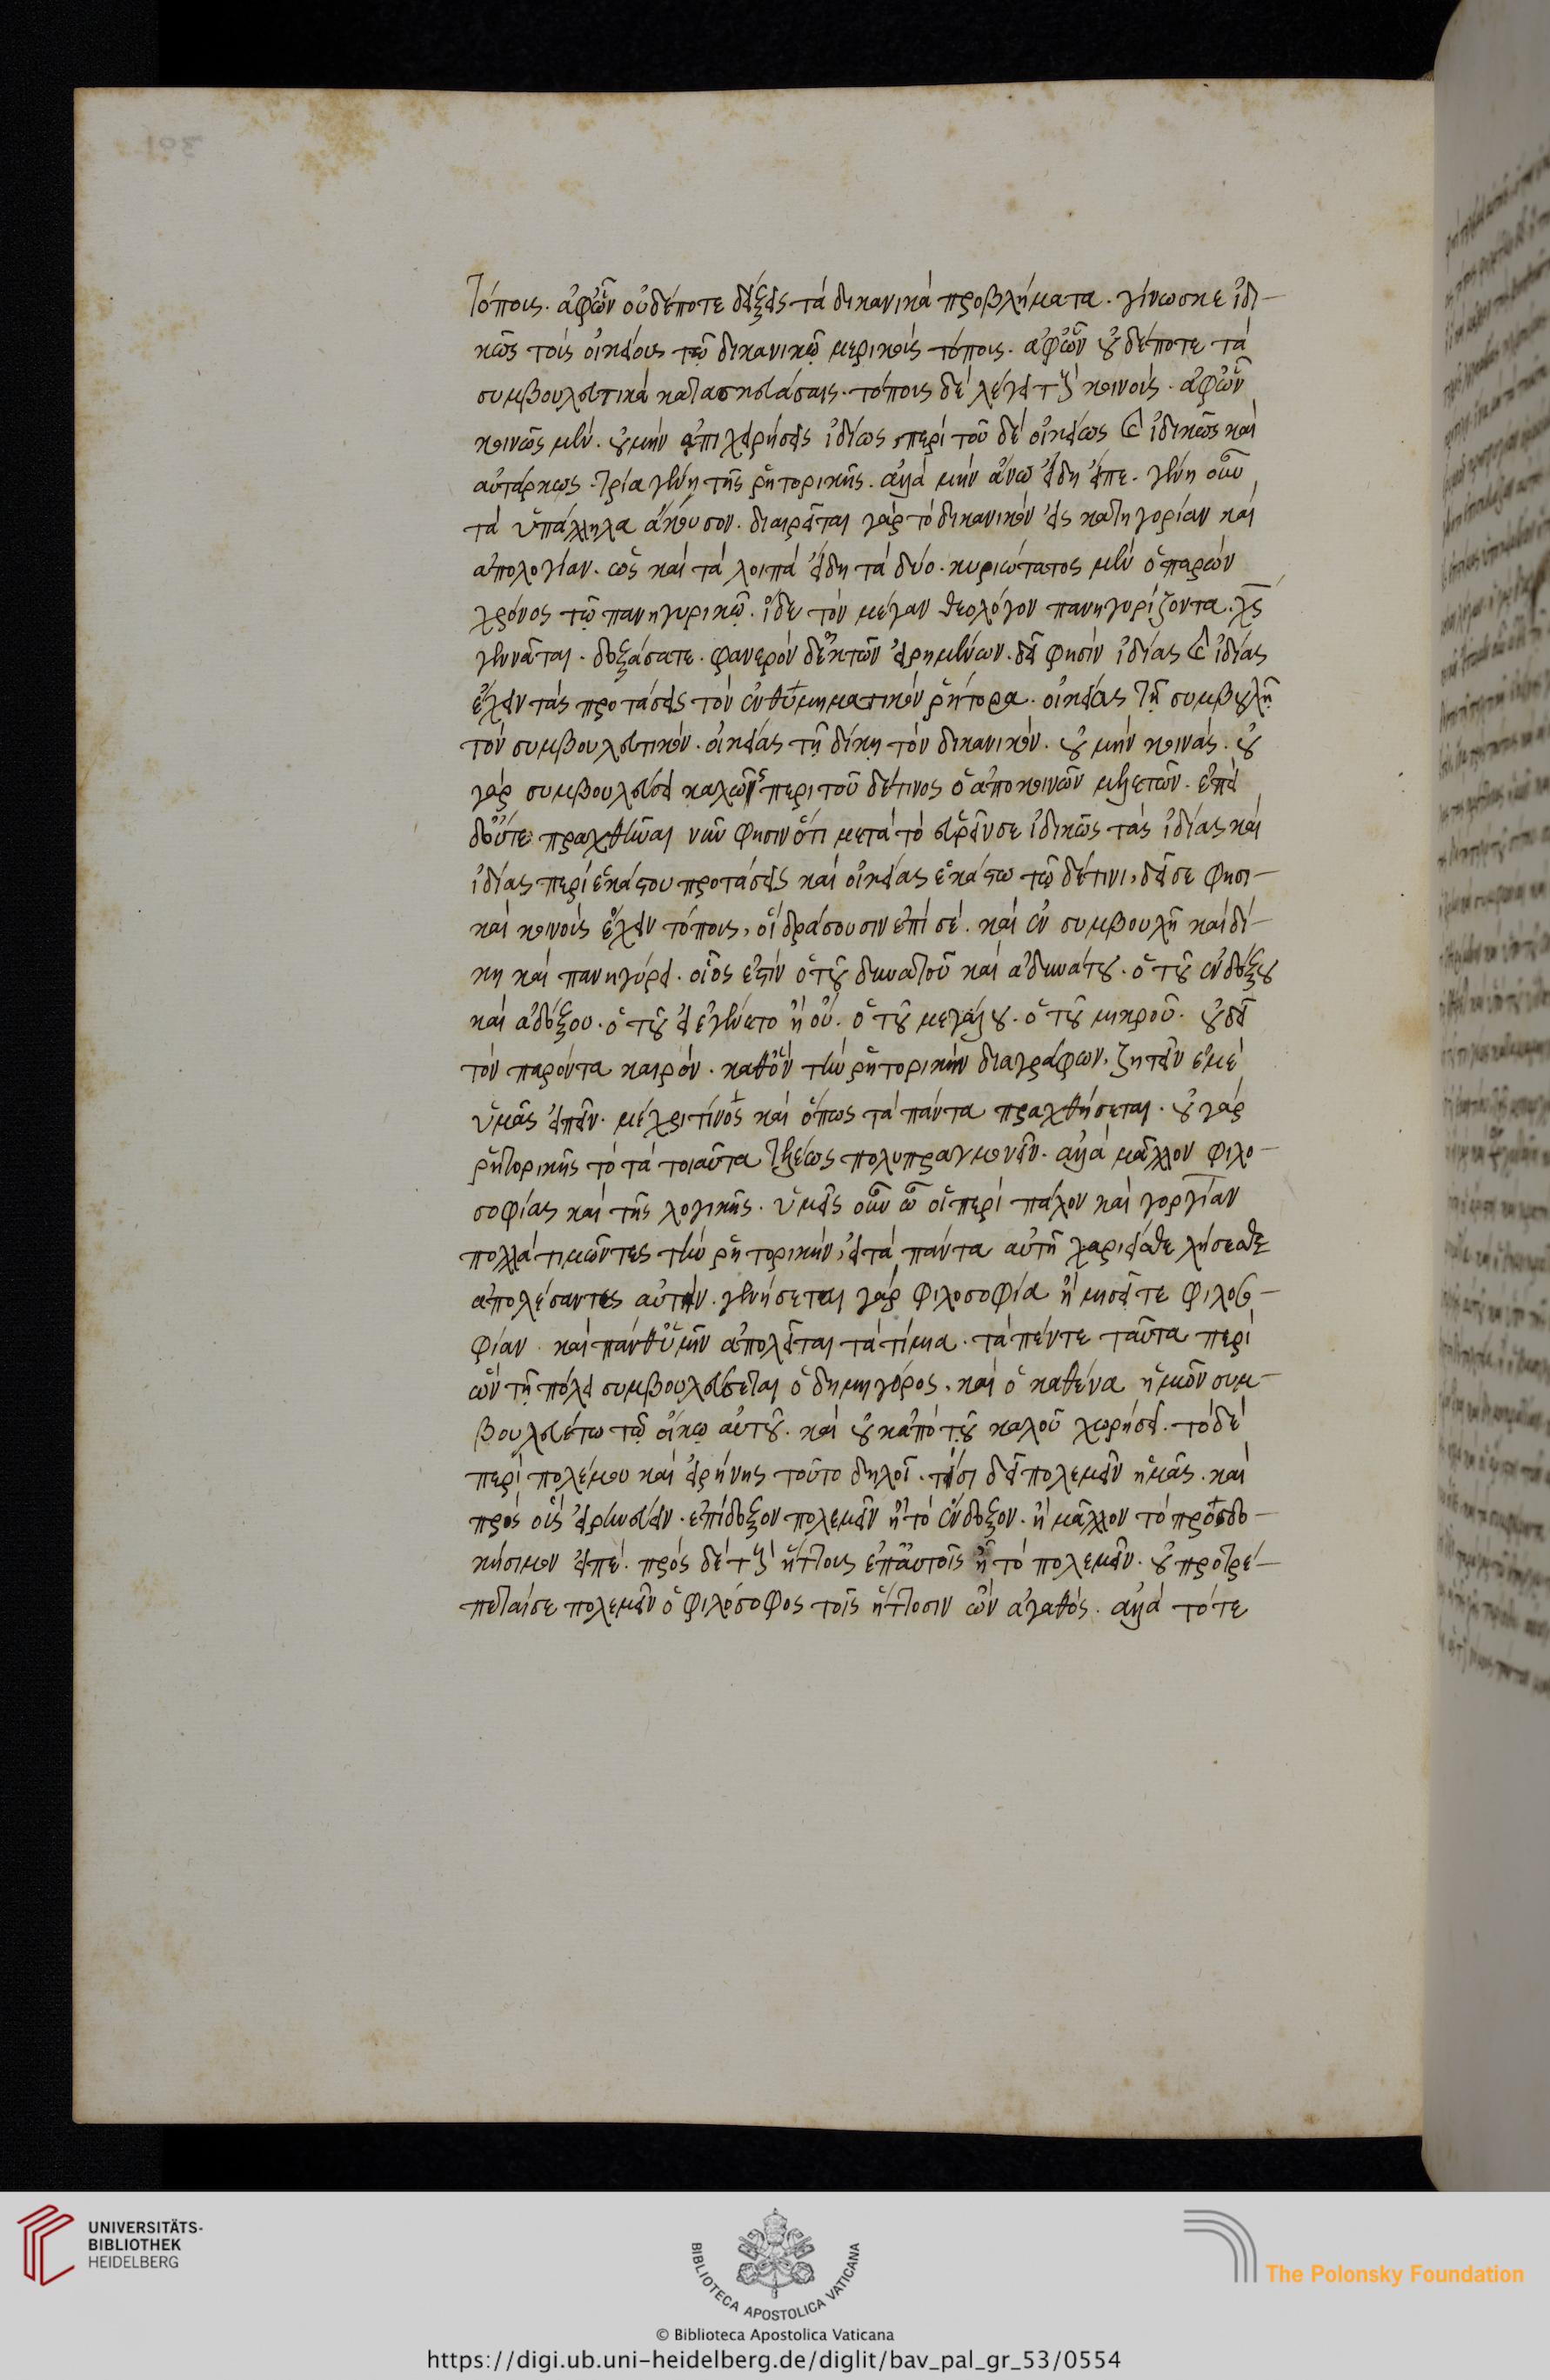 τόποις. ἀφῶν οὐδέποτε δείξεις τὰ δικανικὰ προβλήματα. γίνωσκε ἰδι-
κῶς τοῖς οἰκείοις τῷ δικανικῷ μερικοῖς τόποις. ἀφῶν οὐδέποτε τὰ
συμβουλευτικὰ κατασκευάσαις. τόποις δὲ λέγει τοὺς κοινούς. ἀφῶν
κοινῶς μὲν. οὐ μὴν ἐπιχειρήσεις ἰδίως περὶ τοῦ δὲ οἰκείως καὶ ἰδικῶς καὶ
αὐτάρκως. τρία γένη τῆς ῥητορικῆς. ἀλλὰ μὴν ἄνω εἴδη εἶπε. γένη οὖν
τὰ ὑπάλληλα ἄκουσον. διαιρεῖται γὰρ τὸ δικανικὸν εἰς κατηγορίαν καὶ
ἀπολογίαν. ὡς καὶ τὰ λοιπὰ εἴδη τὰ δύο. κυριώτατος μὲν ὁ παρὼν
χρόνος τῷ πανηγυρικῷ. ἴδε τὸν μέγαν θεολόγον πανηγυρίζοντα. χς
γεννᾶται. δοξάσατε. φανερὸν δ' ἐκ τῶν εἰρημένων. δεῖ φησὶν ἰδίας καὶ ἰδίας
ἔχειν τὰς προτάσεις τὸν ἐνθυμηματικὸν ῥήτορα. οἰκείας τῇ συμβουλῇ
τὸν συμβουλευτικόν. οἰκείας τῇ δίκῃ τὸν δικανικόν. οὐ μὴν κοινάς. οὐ
γὰρ συμβουλεύσει καλῶς περὶ τοῦ δέ τινος ὁ ἀπὸ κοινῶν μελετῶν. ἐπεὶ
δ' οὔτε πραχθῆναι νῦν φησιν ὅτι μετὰ τὸ εὑρεῖν σε ἰδικῶς τὰς ἰδίας καὶ
ἰδίας περὶ ἑκάστου προτάσεις καὶ οἰκείας ἑκάστῳ τῷ δέ τινι, δεῖ σε φησι-
καὶ κοινοὺς ἔχειν τόπους, οἳ δράσουσιν ἐπί σε. καὶ ἐν συμβουλῇ καὶ δί-
κῃ καὶ πανηγύρει. οἷός ἐστιν ὁ τοῦ δυνατοῦ καὶ ἀδυνάτου. ὁ τοῦ ἐνδόξου
καὶ ἀδόξου. ὁ τοῦ εἰ ἐγένετο ἢ οὔ. ὁ τοῦ μεγάλου. ὁ τοῦ μικροῦ. οὐ δεῖ
τὸν παρόντα καιρόν. καθ' ὃν τὴν ῥητορικὴν διαγράφων, ζητεῖν ἐμὲ
ὑμᾶς εἰπεῖν. μέχρι τίνος καὶ ὅπως τὰ πάντα πραχθήσεται. οὐ γὰρ
ῥητορικῆς τὸ τὰ τοιαῦτα τελέως πολυπραγμονεῖν. ἀλλὰ μᾶλλον φιλο-
σοφίας καὶ τῆς λογικῆς. ὑμεῖς οὖν ὦ οἱ περὶ πάλον καὶ γοργίαν
πολλὰ τιμῶντες τὴν ῥητορικήν, εἰ τὰ πάντα αὐτῇ χαριεῖσθε λήσεσθε
ἀπολέσαντες αὐτήν. γενήσεται γὰρ φιλοσοφία ἣ μισεῖτε φιλοσο-
φίαν. καὶ πάνθ' ὑμῖν ἀπολεῖται τὰ τίμια. τὰ πέντε ταῦτα περὶ
ὧν τῇ πόλει συμβουλεύσεται ὁ δημηγόρος. καὶ ὁ καθένα ἡμῶν συμ-
βουλευέτω τῷ οἴκῳ αὐτοῦ. καὶ οὐκ ἀπὸ τοῦ καλοῦ χωρήσει. τὸ δὲ
περὶ πολέμου καὶ εἰρήνης τοῦτο δηλοῖ. τίσι δεῖ πολεμεῖν ἡμᾶς. καὶ
πρὸς οὓς εἰρηνεύειν. ἐπίδοξον πολεμεῖν ἢ τὸ ἔνδοξον. ἢ μᾶλλον τὸ προσδο-
κήσιμον εἰπέ. πρὸς δὲ τοὺς ἥττους ἐπ' αὐτοῖς ᾖ τὸ πολεμεῖν. οὐ προτρέ-
πεταί σε πολεμεῖν ὁ φιλόσοφος τοῖς ἥττοσιν ὢν ἀγαθός. ἀλλὰ τότε
UNIVERSITÄTS-
BIBLIOTHEK
HEIDELBERG
BIBLIOTECA APOSTOLICA VATICANA
The Polonsky Foundation
© Biblioteca Apostolica Vaticana
https://digi.ub.uni-heidelberg.de/diglit/bav_pal_gr_53/0554